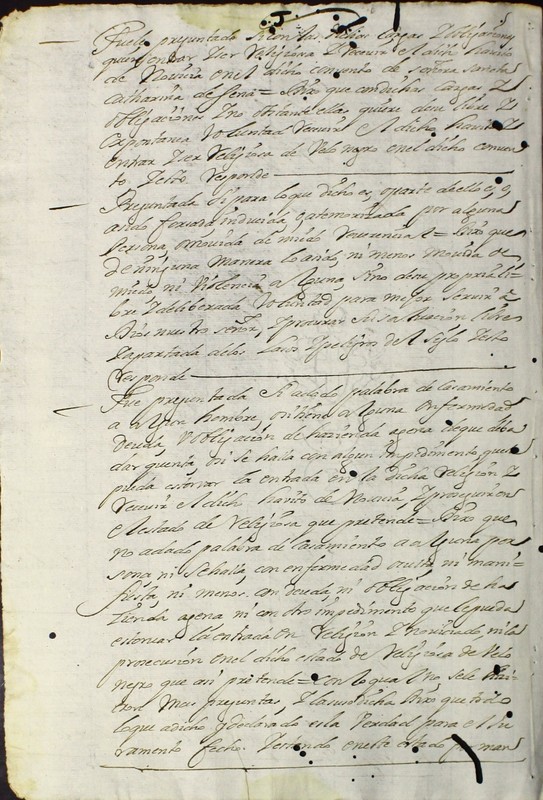 Fuele preguntado si con las dichas cargas y obligaciones
quiere entrar a ser Religiosa y recevir el abito
de Novicia en el dicho convento de señora sancta
Catharina de sena = Dixo que con dichas cargas y
obligaciones y no obstante ellas quiere de su libre y
espontanea Voluntad recevir el dicho havito y
entrar a ser Religiosa de Velo negro en el dicho conven
to. y esto responde
Preguntada si para lo que dicho es, o parte de ello es, o
a sido forçada inducida, o atemoriçada por alguna
Persona, o movida de miedo reverencial = Dixo que
de ninguna manera lo a sido, ni menos movida de
miedo ni Violencia alguna, sino de su propria li=
bre y deliberada Voluntad para mejor servir a
Dios nuestro señor, y procurar su salvacion libre
y apartada de los lazos y peligros del siglo y esto
responde
Fue preguntada si a dado palabra de casamiento
a algun hombre, o tiene alguna enfermedad
deuda, u obligacion de hazienda agena de que deba
dar quenta, o si se halla con algun impedimento que
pueda estorvar la entrada en la dicha Religion y
recevir el dicho havito de Novicia, y proseguir en
el estado de Religiosa que pretende = Dixo que
no a dado palabra de casamiento a alguna per
sona, ni se halla, con enfermedad oculta, ni mani=
fiesta, ni menos con deuda, ni obligacion de ha
zienda agena, ni con otro impedimento que le pueda
estorvar la entrada en Religion y noviciado, ni la
prosecucion en el dicho estado de Religiosa de Velo
negro que asi pretende = con lo qual no se le hizi
eron mas preguntas, y la susodicha dixo que todo
lo que a dicho y declarado es la Verdad para el ju
ramento fecho. y estando en este estado